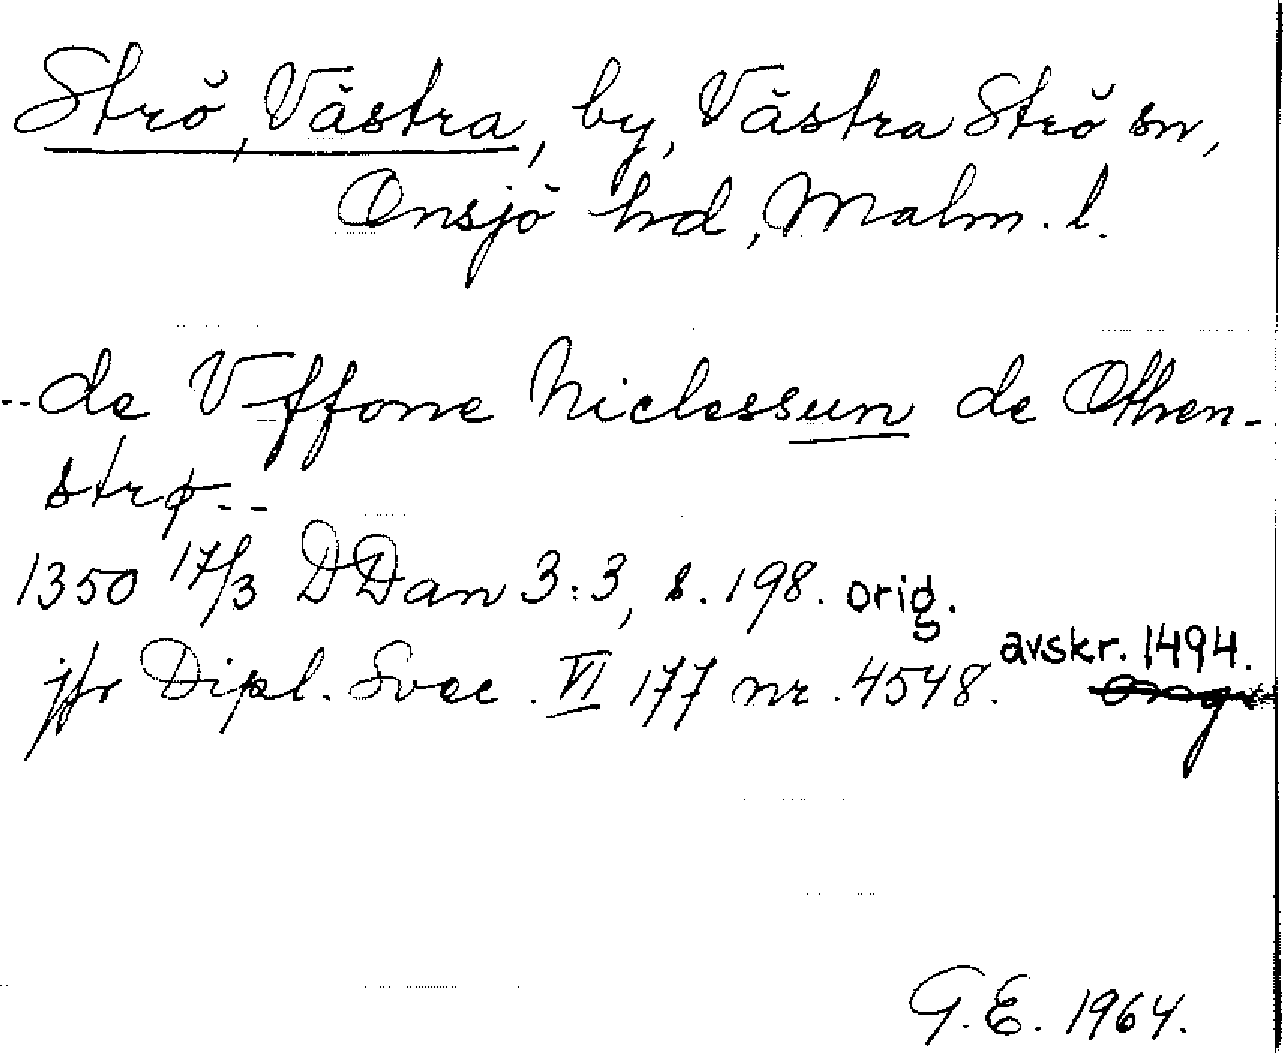 Strö, Västra, by, Västra Strö sn,
Onsjö hd, Malm. l.
--de Vffone Niclessun de Othen-
strø--
1350 17/3 DDan 3:3, s. 198. orig.
avskr. 1494.
jfr Dipl. Svec. VI 177 nr. 4548.
G.E. 1964.